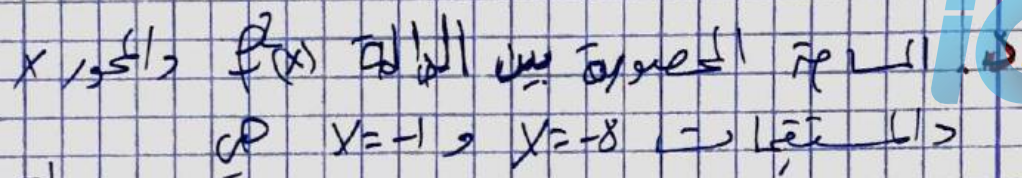 د. المساحة المحصورة بين الدالة f²(x) والمحور x
والمستقيمات x=-8 و x=-1 هي